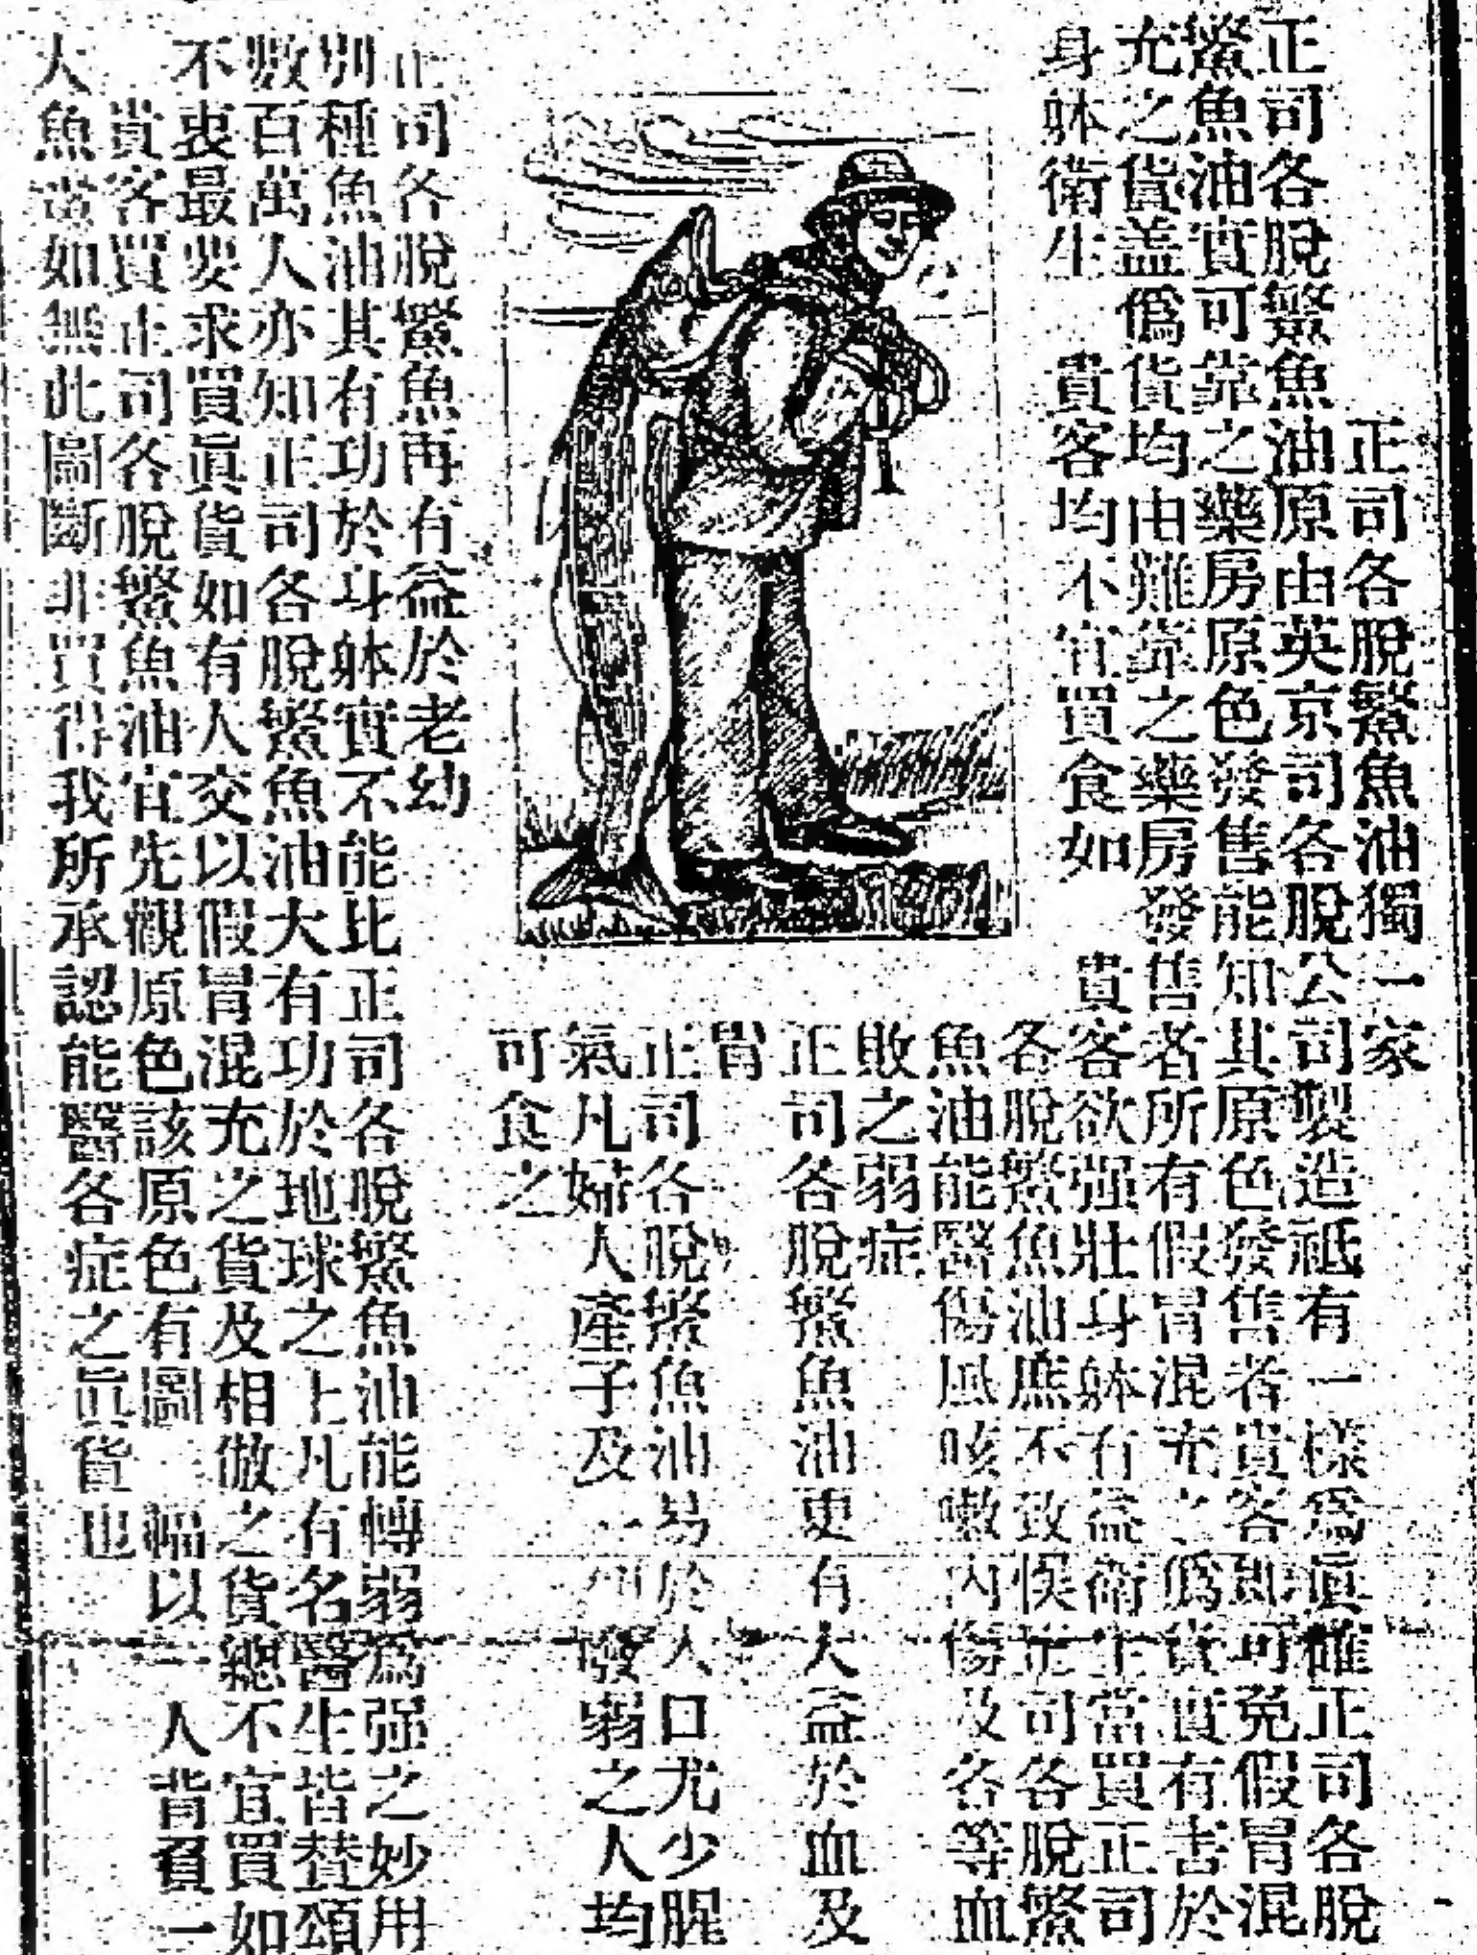 正司各脫鰵魚油獨一家
正司各脫鰵魚油原由英京司各脫公司製造祗有一樣爲眞確正司各脫
鰵魚油實可靠之藥房原色發售能知其原色發售者貴客卽可免假冒混
充之貨蓋僞貨均由難靠之藥房發售者所有假冒混充之僞貨實有害於
身躰衛生 貴客均不宜買食如 貴客欲强壯身躰有益衛生當買正司
各脫鰵魚油庶不致悞正司各脫鰵
魚油能醫傷風咳嗽內傷及各等血
敗之弱症
正司各脫鰵魚油更有大益於血及
胃
正司各脫鰵魚油易於入口尤少腥
氣凡婦人產子及一切發弱之人均
可食之
正司各脫鰵魚再有益於老幼
別種魚油其有功於身躰實不能比正司各脫鰵魚油能轉弱爲强之妙用
數百萬人亦知正司各脫鰵魚油大有功於地球之上凡有名醫生皆贊頌
不衷最要求買眞貨如有人交以假冒混充之貨及相倣之貨總不宜買如
貴客買正司各脫鰵魚油宜先觀原色該原色有圖 幅以一人背負一
大魚 如無此圖斷非買得我所承認能醫各症之眞貨也